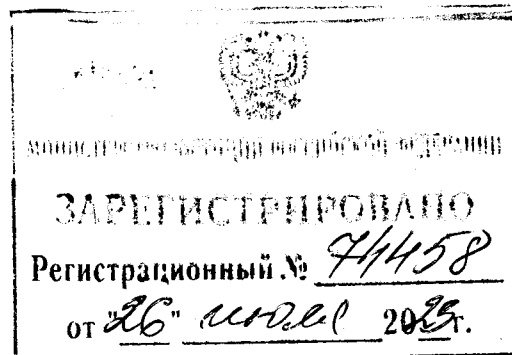 МИНИСТЕРСТВО ЮСТИЦИИ РОССИЙСКОЙ ФЕДЕРАЦИИ
ЗАРЕГИСТРИРОВАНО
Регистрационный № 74458
от "26" июля 2023г.